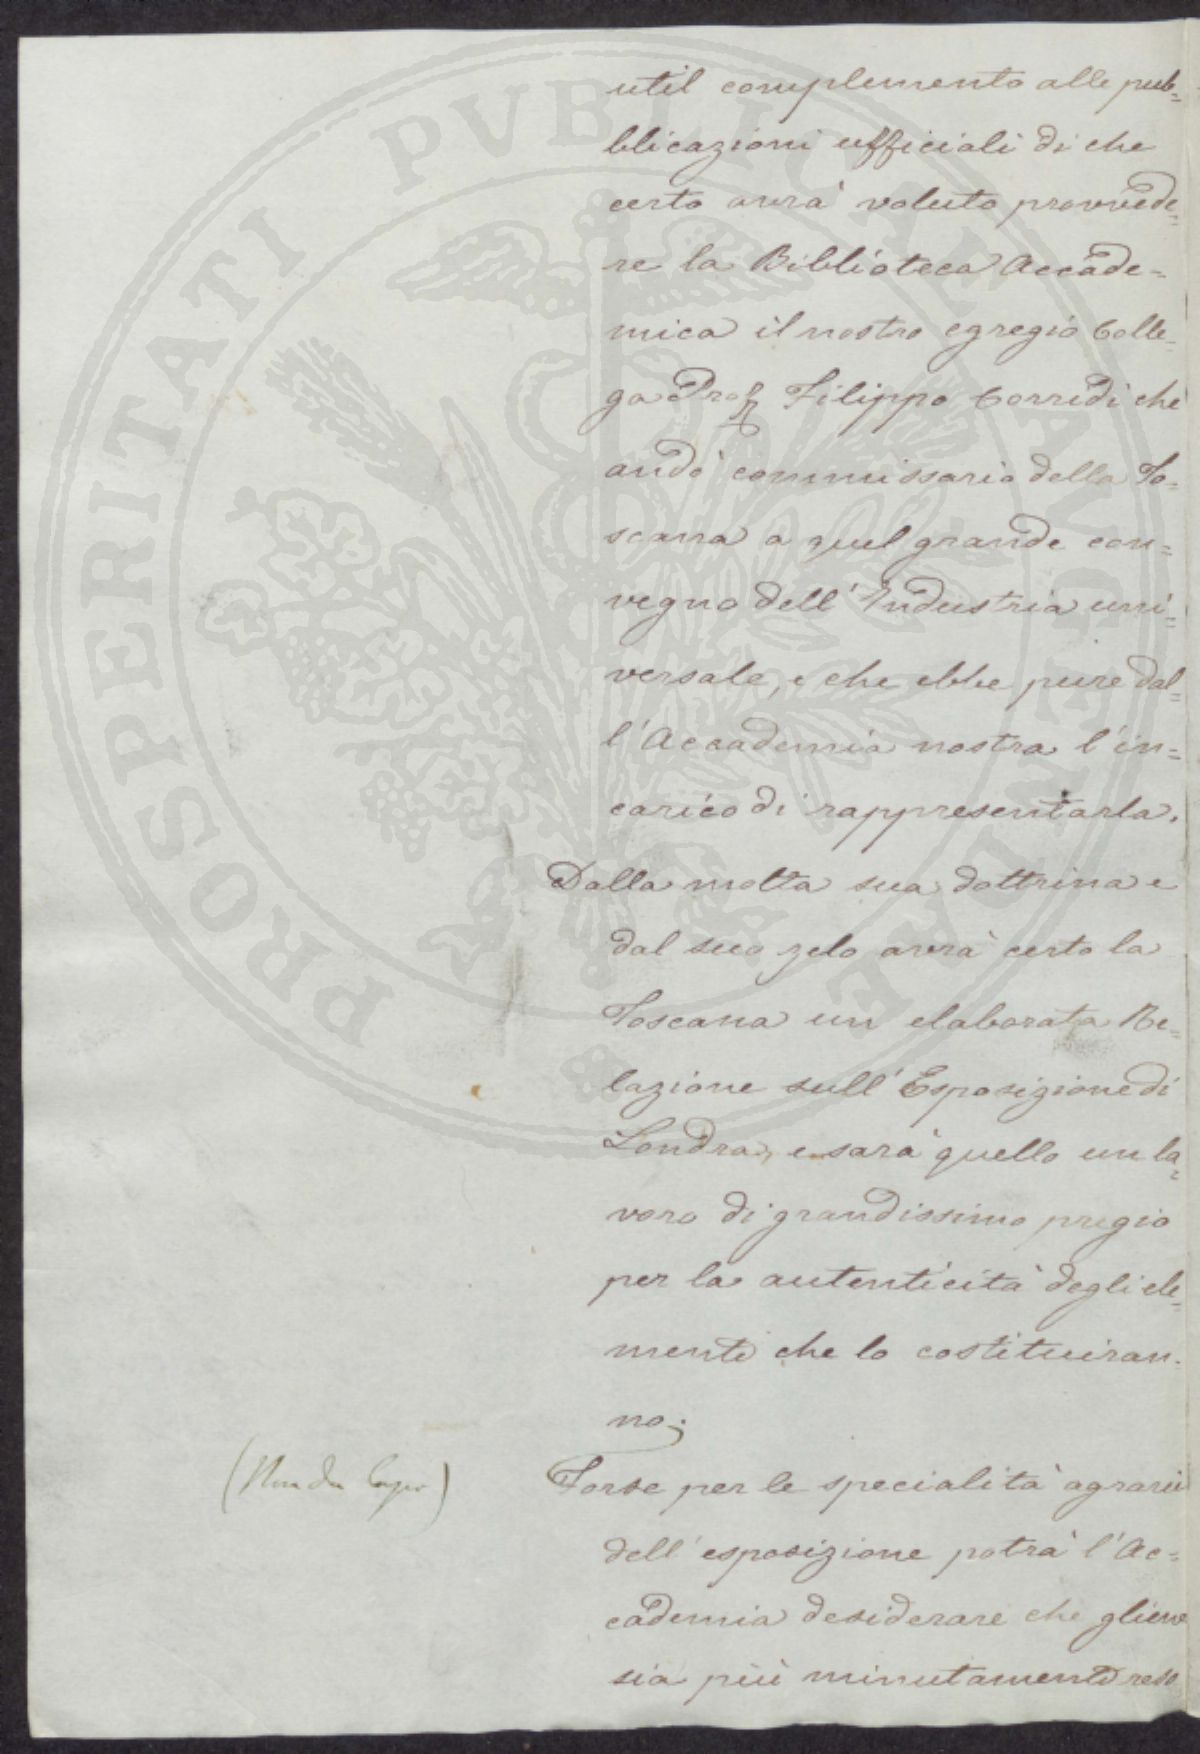 util complemento alle pub=
blicazioni ufficiali di che
certo avrà voluto provvede=
re la Biblioteca Accade=
mica il nostro egregio Colle=
ga Prof. Filippo Corridi che
andò commissario della To=
scana a quel grande con=
vegno dell'Industria uni=
versale, e che ebbe pure dal=
l'Accademia nostra l'in=
carico di rappresentarla.
Dalla molta sua dottrina e
dal suo zelo avrà certo la
Toscana un elaborata Re=
lazione sull'Esposizione di
Londra, e sarà quello un la=
voro di grandissimo pregio
per la autenticità degli ele=
menti che lo costituiran=
no;
(Non da Capo)
Forse per le specialità agrarie
dell'esposizione potrà l'Ac=
cademia desiderare che gliene
sia più minutamente reso
PROSPERITATI PVBLICAE AVGENDAE